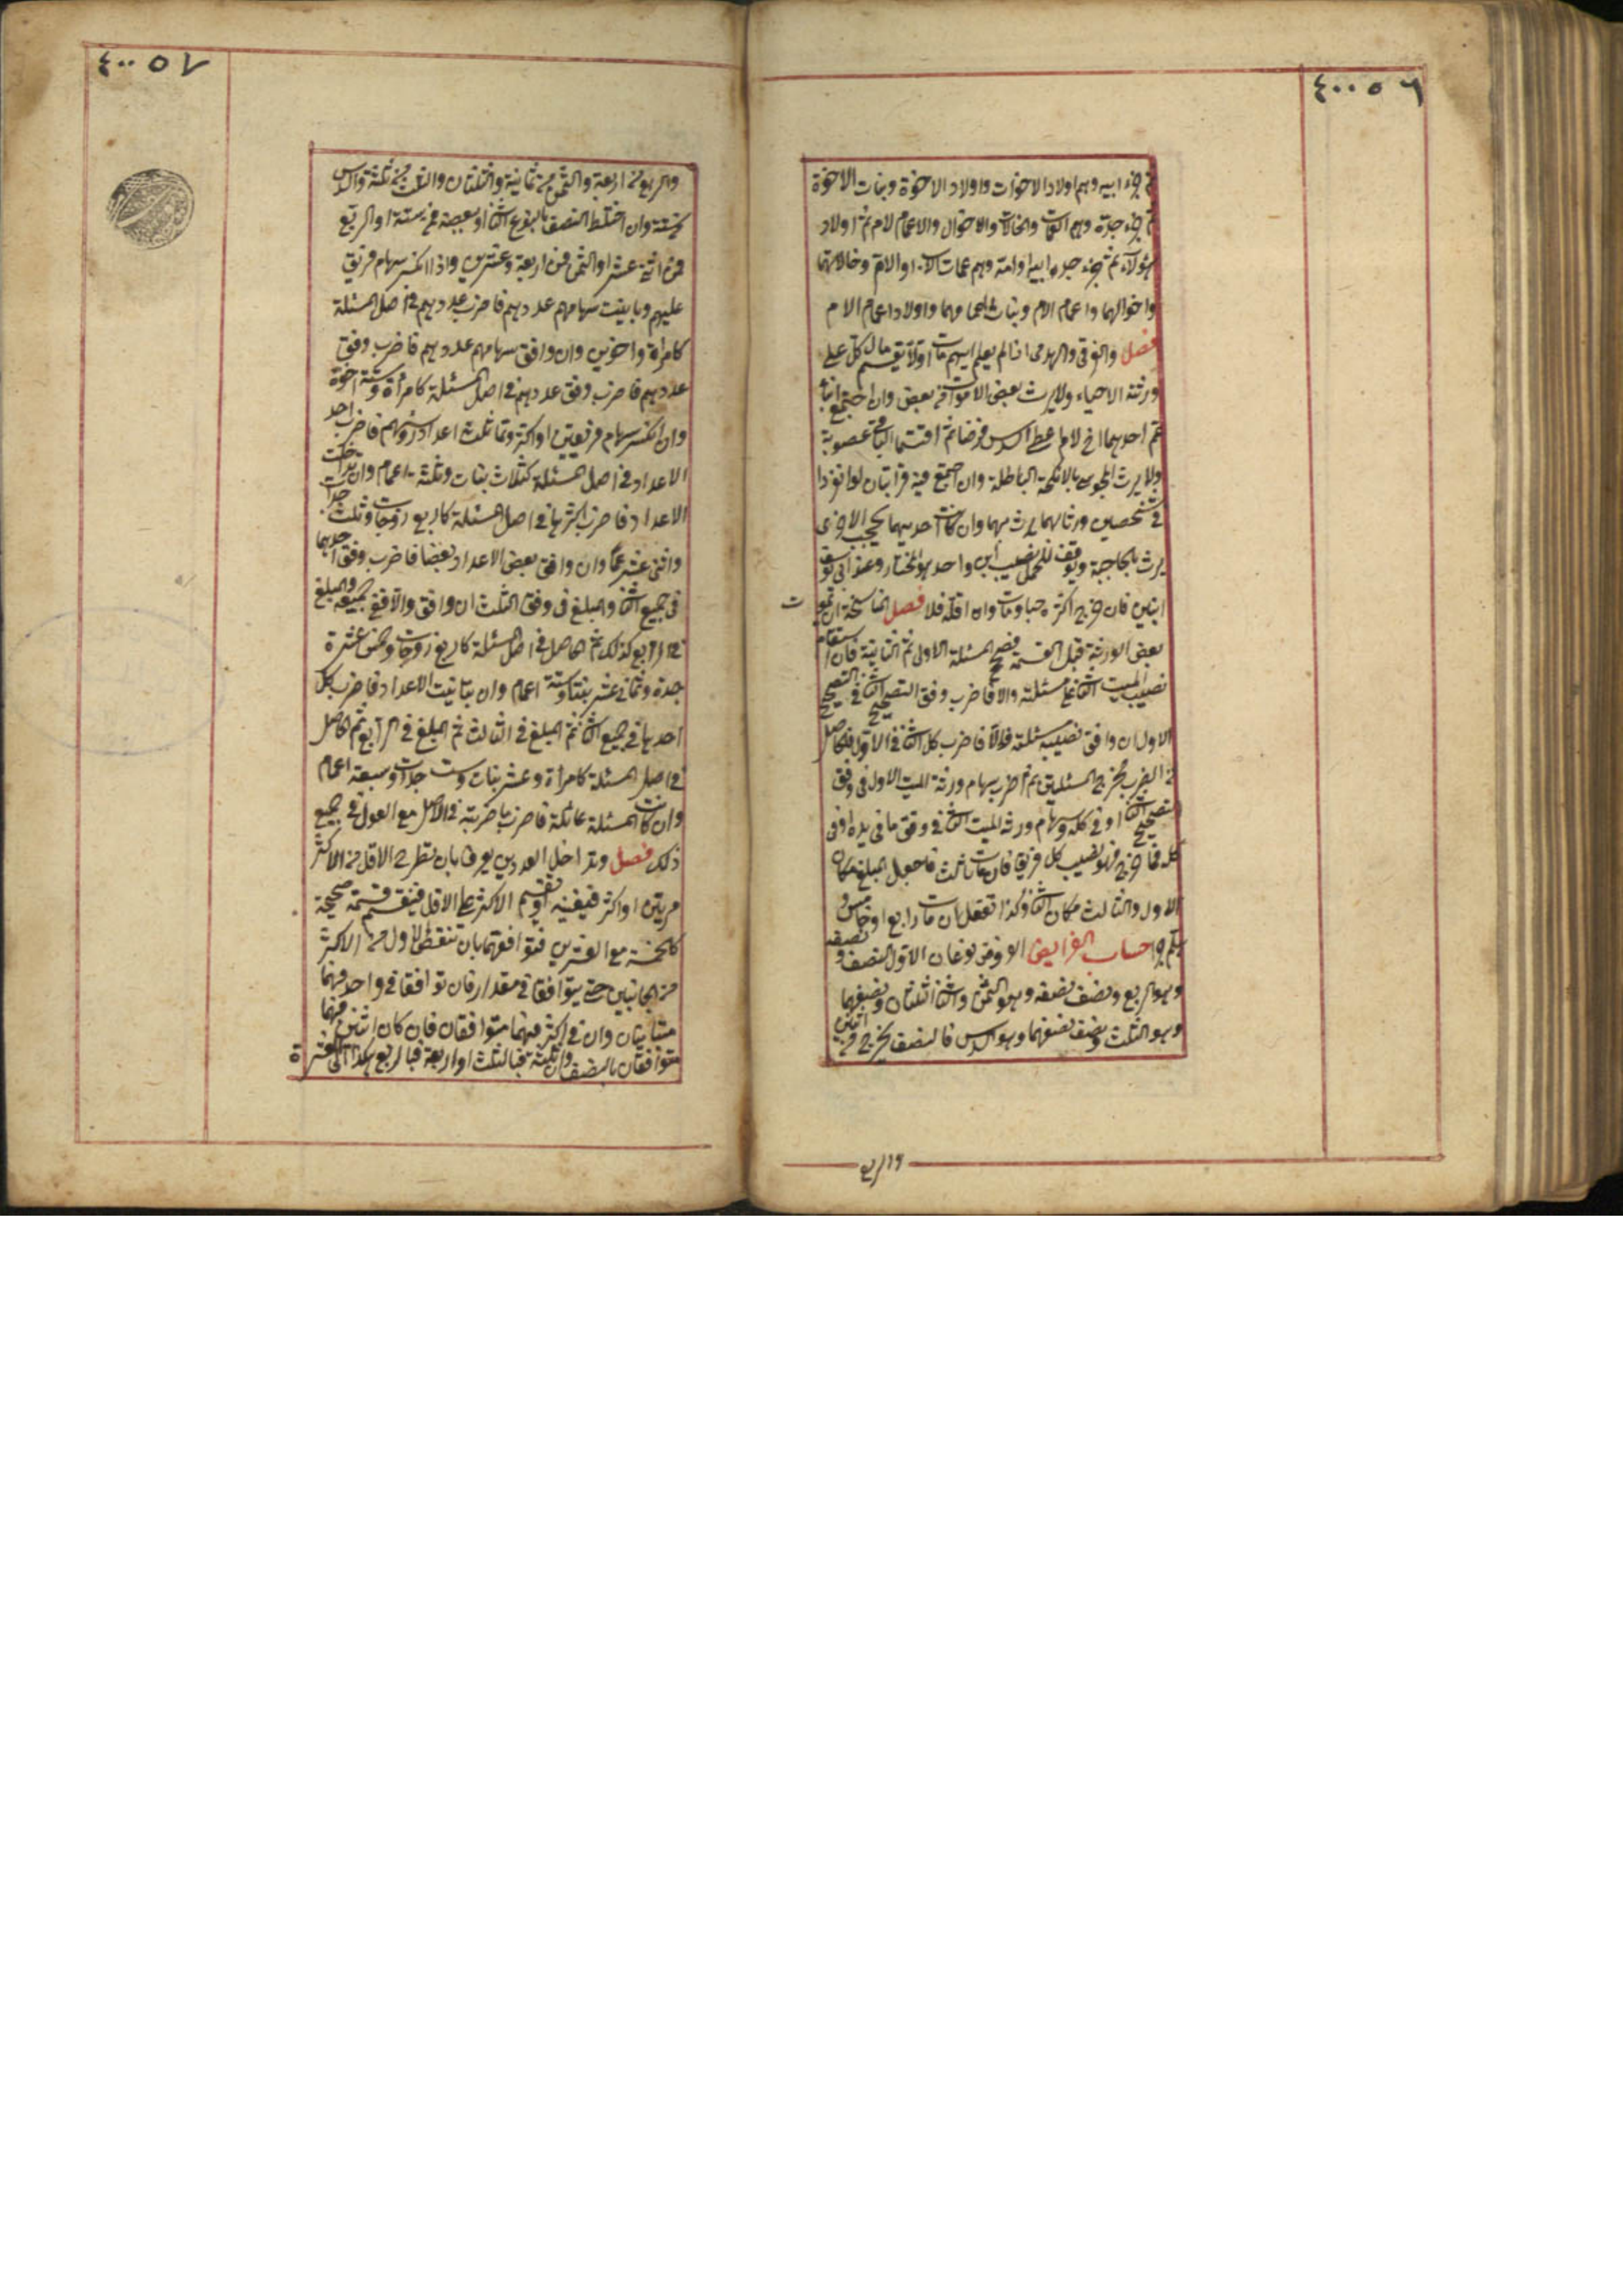 ٤٠٠٥٦
ثم جزء ابيه وهم اولاد الاخوات واولاد الاخوة وبنات الاخوة
ثم جزء جده وهم العمات والخالات والاخوال والاعمام لام ثم اولاد
هؤلاء ثم جزء جد ابيه او امه وهم عمات الاب او الام وخالاتهما
واخوالهما واعمام الام وبنات اعمامهما واولاد اعمام الام
فصل والغرقى والهدمى اذا لم يعلم ايهم مات اولا يقسم مال كل على
ورثته الاحياء ولا يرث بعض الاموات من بعض وان اجتمع ابنا
عم احدهما اخ لام اعطى السدس فرضا ثم اقتسما الباقى عصوبة
ولا يرث المجوسى بالانكحة الباطلة وان اجتمع فيه قرابتان لو انفردا
فى شخصين ورثا بهما يرث بهما وان كانت احديهما تحجب الاخرى
يرث بالحاجبة ويوقف للحمل نصيب ابن واحد هو المختار وعند ابى يوسف
ابنين فان خرج اكثره حيا ومات ورث وان اقله فلا فصل المناسخة ان يموت
بعض الورثة قبل القسمة فصحح المسئلة الاولى ثم الثانية فان استقام
نصيب الميت الثانى على مسئلته والا فاضرب وفق التصحيح الثانى فى التصحيح
الاول ان وافق نصيبه مسئلته والا فاضرب كل الثانى فى الاول فالحاصل
من الضرب مخرج المسئلتين ثم اضرب سهام ورثة الميت الاول فى وفق
التصحيح الثانى او فى كله وسهام ورثة الميت الثانى فى وفق ما فى يده او فى
كله فما خرج فهو نصيب كل فريق فان مات ثالث فاجعل المبلغ مكان
الاول والثالث مكان الثانى وكذا تفعل ان مات رابع او خامس و
هلم جرا حساب الفرايض الفروض نوعان الاول النصف ونصفه
وهو الربع ونصف نصفه وهو الثمن والثانى الثلثان ونصفهما
وهو الثلث ونصف نصفهما وهو السدس فالنصف يخرج من اثنين
والربع
٤٠٠٥٧
والربع من اربعة والثمن من ثمانية والثلثان والثلث من ثلثة والسدس
من ستة وان اختلط النصف بالنوع الثانى او ببعضه فمن ستة او الربع
فمن اثنى عشر او الثمن فمن اربعة وعشرين واذا انكسر سهام فريق
عليهم وباينت سهامهم عددهم فاضرب عددهم فى اصل المسئلة
كامرأة واخوين وان وافق سهامهم عددهم فاضرب وفق
عددهم فاضرب وفق عددهم فى اصل المسئلة كامرأة وستة اخوة
وان انكسر سهام فريقين او اكثر وتماثلت اعداد رؤسهم فاضرب احد
الاعداد فى اصل المسئلة كثلاث بنات وثلثة اعمام وان تداخلت
الاعداد فاضرب اكثرها فى اصل المسئلة كاربع زوجات وثلث جدات
واثنى عشر عما وان وافق بعض الاعداد بعضا فاضرب وفق احدهما
فى جميع الثانى والمبلغ فى وفق الثلث ان وافق والا ففى جميعه والمبلغ
فى الرابع كذلك ثم الحاصل فى اصل المسئلة كاربع زوجات وخمس عشرة
جدة وثمانى عشر بنتا وستة اعمام وان تباينت الاعداد فاضرب كل
احدها فى جميع الثانى ثم المبلغ فى الثالث ثم المبلغ فى الرابع ثم الحاصل
فى اصل المسئلة كامرأة وعشر بنات وست جدات وسبعة اعمام
وان كانت المسئلة عائلة فاضرب ما ضربته فى الاصل مع العول فى جميع
ذلك فصل وتداخل العددين يعرف بان يطرح الاقل من الاكثر
مرتين او اكثر فيفنيه او تقسم الاكثر على الاقل فينقسم قسمة صحيحة
كالخمسة مع العشرين وتوافقهما بان تنقص الاول من الاكثر
من الجانبين حتى يتوافقا فى مقدار فان توافقا فى واحد فهما
متباينان وان فى اكثر فهما متوافقان فان كان اثنين فهما
متوافقان بالنصف وان ثلثة فبالثلث او اربعة فبالربع هكذا الى العشرة